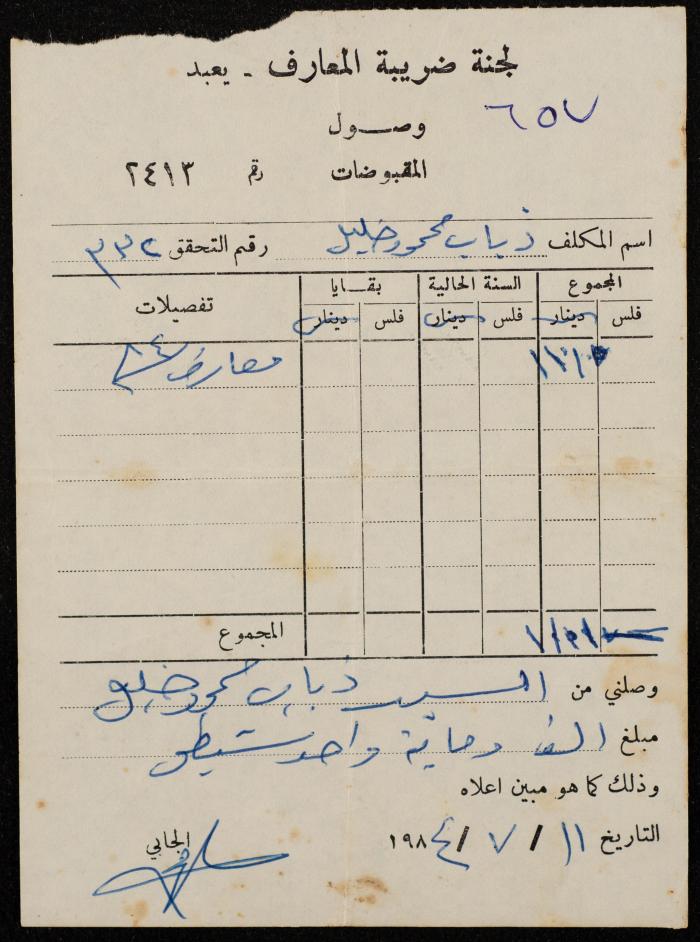 لجنة ضريبة المعارف - يعبد
٦٥٧
وصول
المقبوضات رقم ٢٤١٣
اسم المكلف ذياب محمود خليل رقم التحقق ٣٣٢
المجموع السنة الحالية بقايا تفصيلات
فلس دينار فلس دينار فلس دينار
معارف ٨٤
المجموع
وصلني من السيد ذياب محمود خليل
مبلغ الف ومائة واحد شيقل
وذلك كما هو مبين اعلاه
التاريخ ١١ / ٧ / ١٩٨٤
الجابي